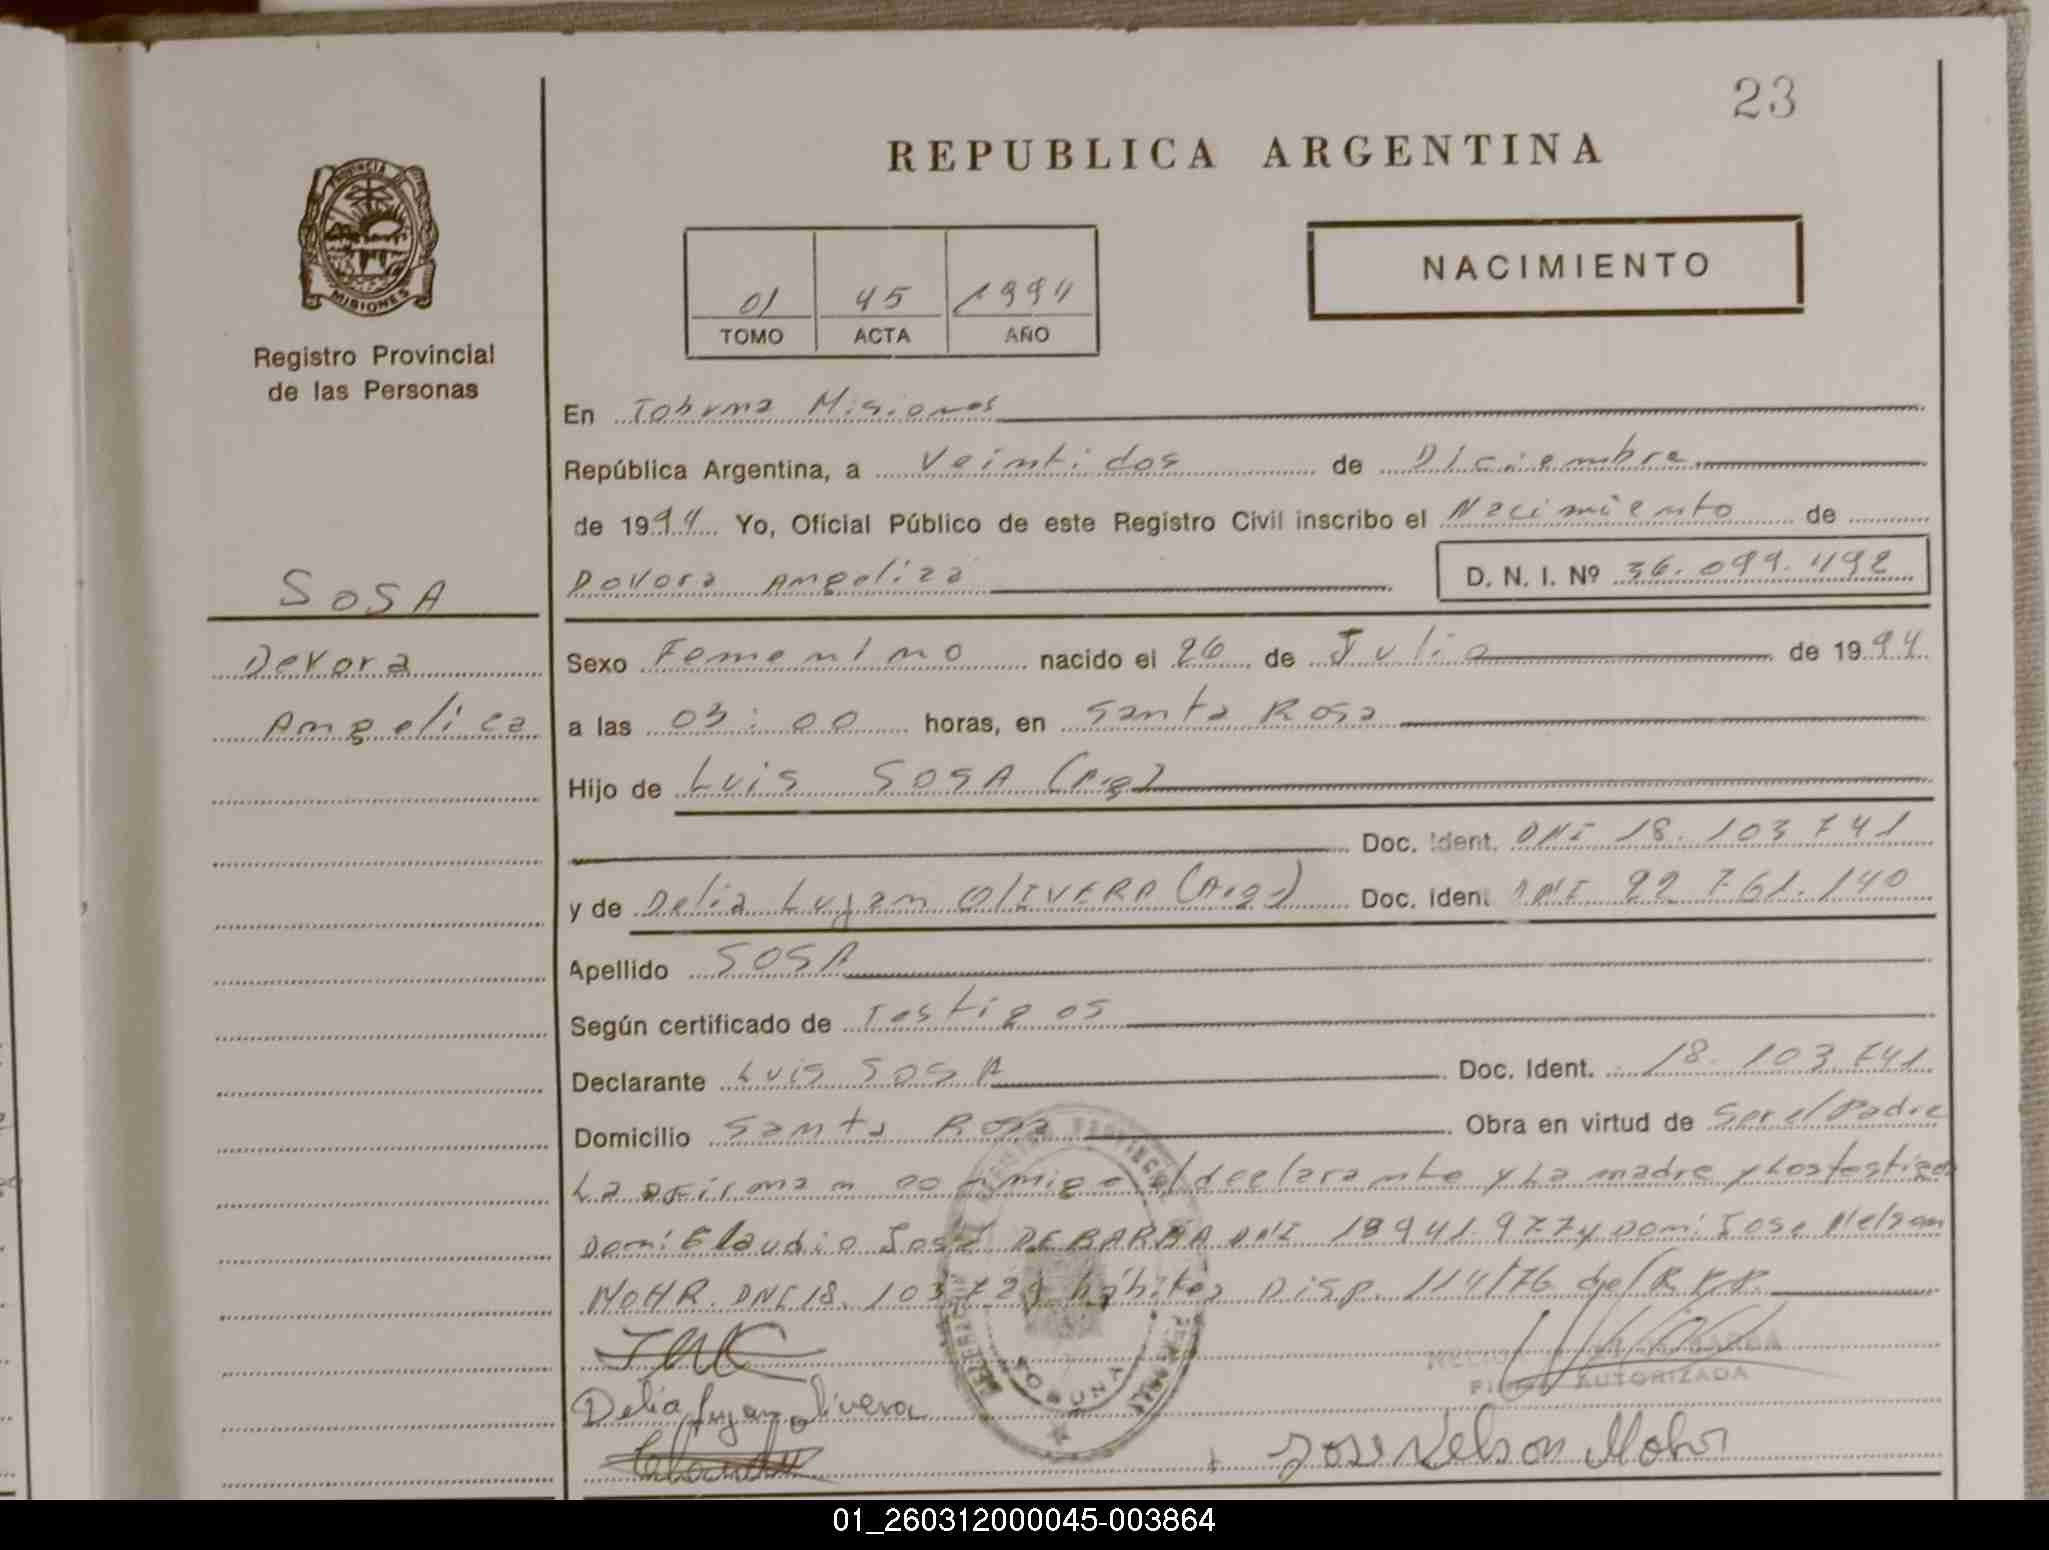 23
REPUBLICA ARGENTINA
PROVINCIA DE MISIONES
Registro Provincial
de las Personas
NACIMIENTO
01 45 1994
TOMO ACTA AÑO
En Tobuna Misiones
República Argentina, a Veintidos de Diciembre
de 1994 Yo, Oficial Público de este Registro Civil inscribo el Nacimiento de
Devora Angelica
D. N. I. Nº 36.099.492
SOSA
Devora
Angelica
Sexo Femenino nacido el 26 de Julio de 1994
a las 03:00 horas, en Santa Rosa
Hijo de Luis SOSA (Arg)
Doc. Ident. DNI 18.103.741
y de Delia Lujan OLIVERA (Arg) Doc. Ident DNI 22.761.140
Apellido SOSA
Según certificado de Testigos
Declarante Luis SOSA Doc. Ident. 18.103.741
Domicilio Santa Rosa Obra en virtud de Ser el Padre
La firman conmigo el declarante y La madre y Los testigos
Domi Claudio José DEBARBA DNI 18 941.977 y Domi Jose Nelson
MOHR. DNI 18.103.729 hábiles Disp. 114/76 del R.P.P.
Delia Lujan Olivera
AUTORIZADA
TOBUNA
Jose Nelson Mohr
01_260312000045-003864